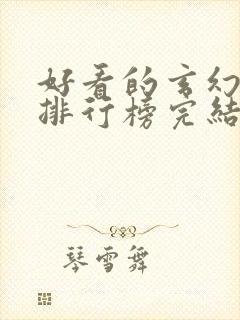 好看的玄幻
排行榜完结
琴雪舞